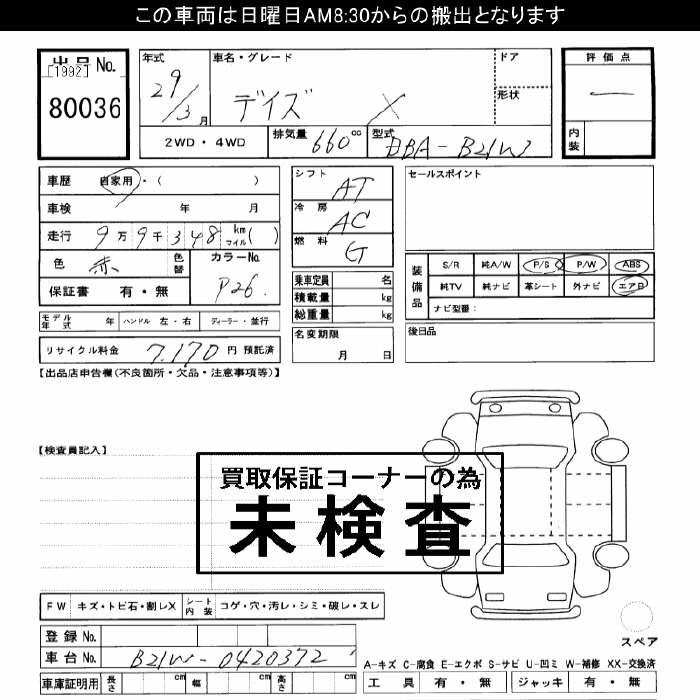 この車両は日曜日AM8:30からの搬出となります
出品No.
[1992]
80036
年式
29/3月
車名・グレード
デイズ X
ドア
形状
評価点
―
内装
2WD・4WD
排気量 660cc
型式 DBA-B21W
車歴 自家用・( )
車検 年 月
走行 9万9千348 km マイル( )
色 赤 色替
カラーNo. P26
保証書 有・無
シフト AT
冷房 AC
燃料 G
セールスポイント
乗車定員 名
積載量 kg
総重量 kg
装備品
S/R 純A/W P/S P/W ABS
純TV 純ナビ 革シート 外ナビ エアB
ナビ型番:
モデル年式 年 ハンドル 左・右 ディーラー・並行
名変期限 月 日
後日品
リサイクル料金 7,170 円 預託済
【出品店申告欄(不良箇所・欠品・注意事項等)】
【検査員記入】
買取保証コーナーの為
未検査
FW キズ・トビ石・割レX シート内装 コゲ・穴・汚レ・シミ・破レ・スレ
スペア
登録No.
車台No. B21W-0420372
A-キズ C-腐食 E-エクボ S-サビ U-凹ミ W-補修 XX-交換済
車庫証明用 長さ cm 幅 cm 高さ cm
工具 有・無 ジャッキ 有・無